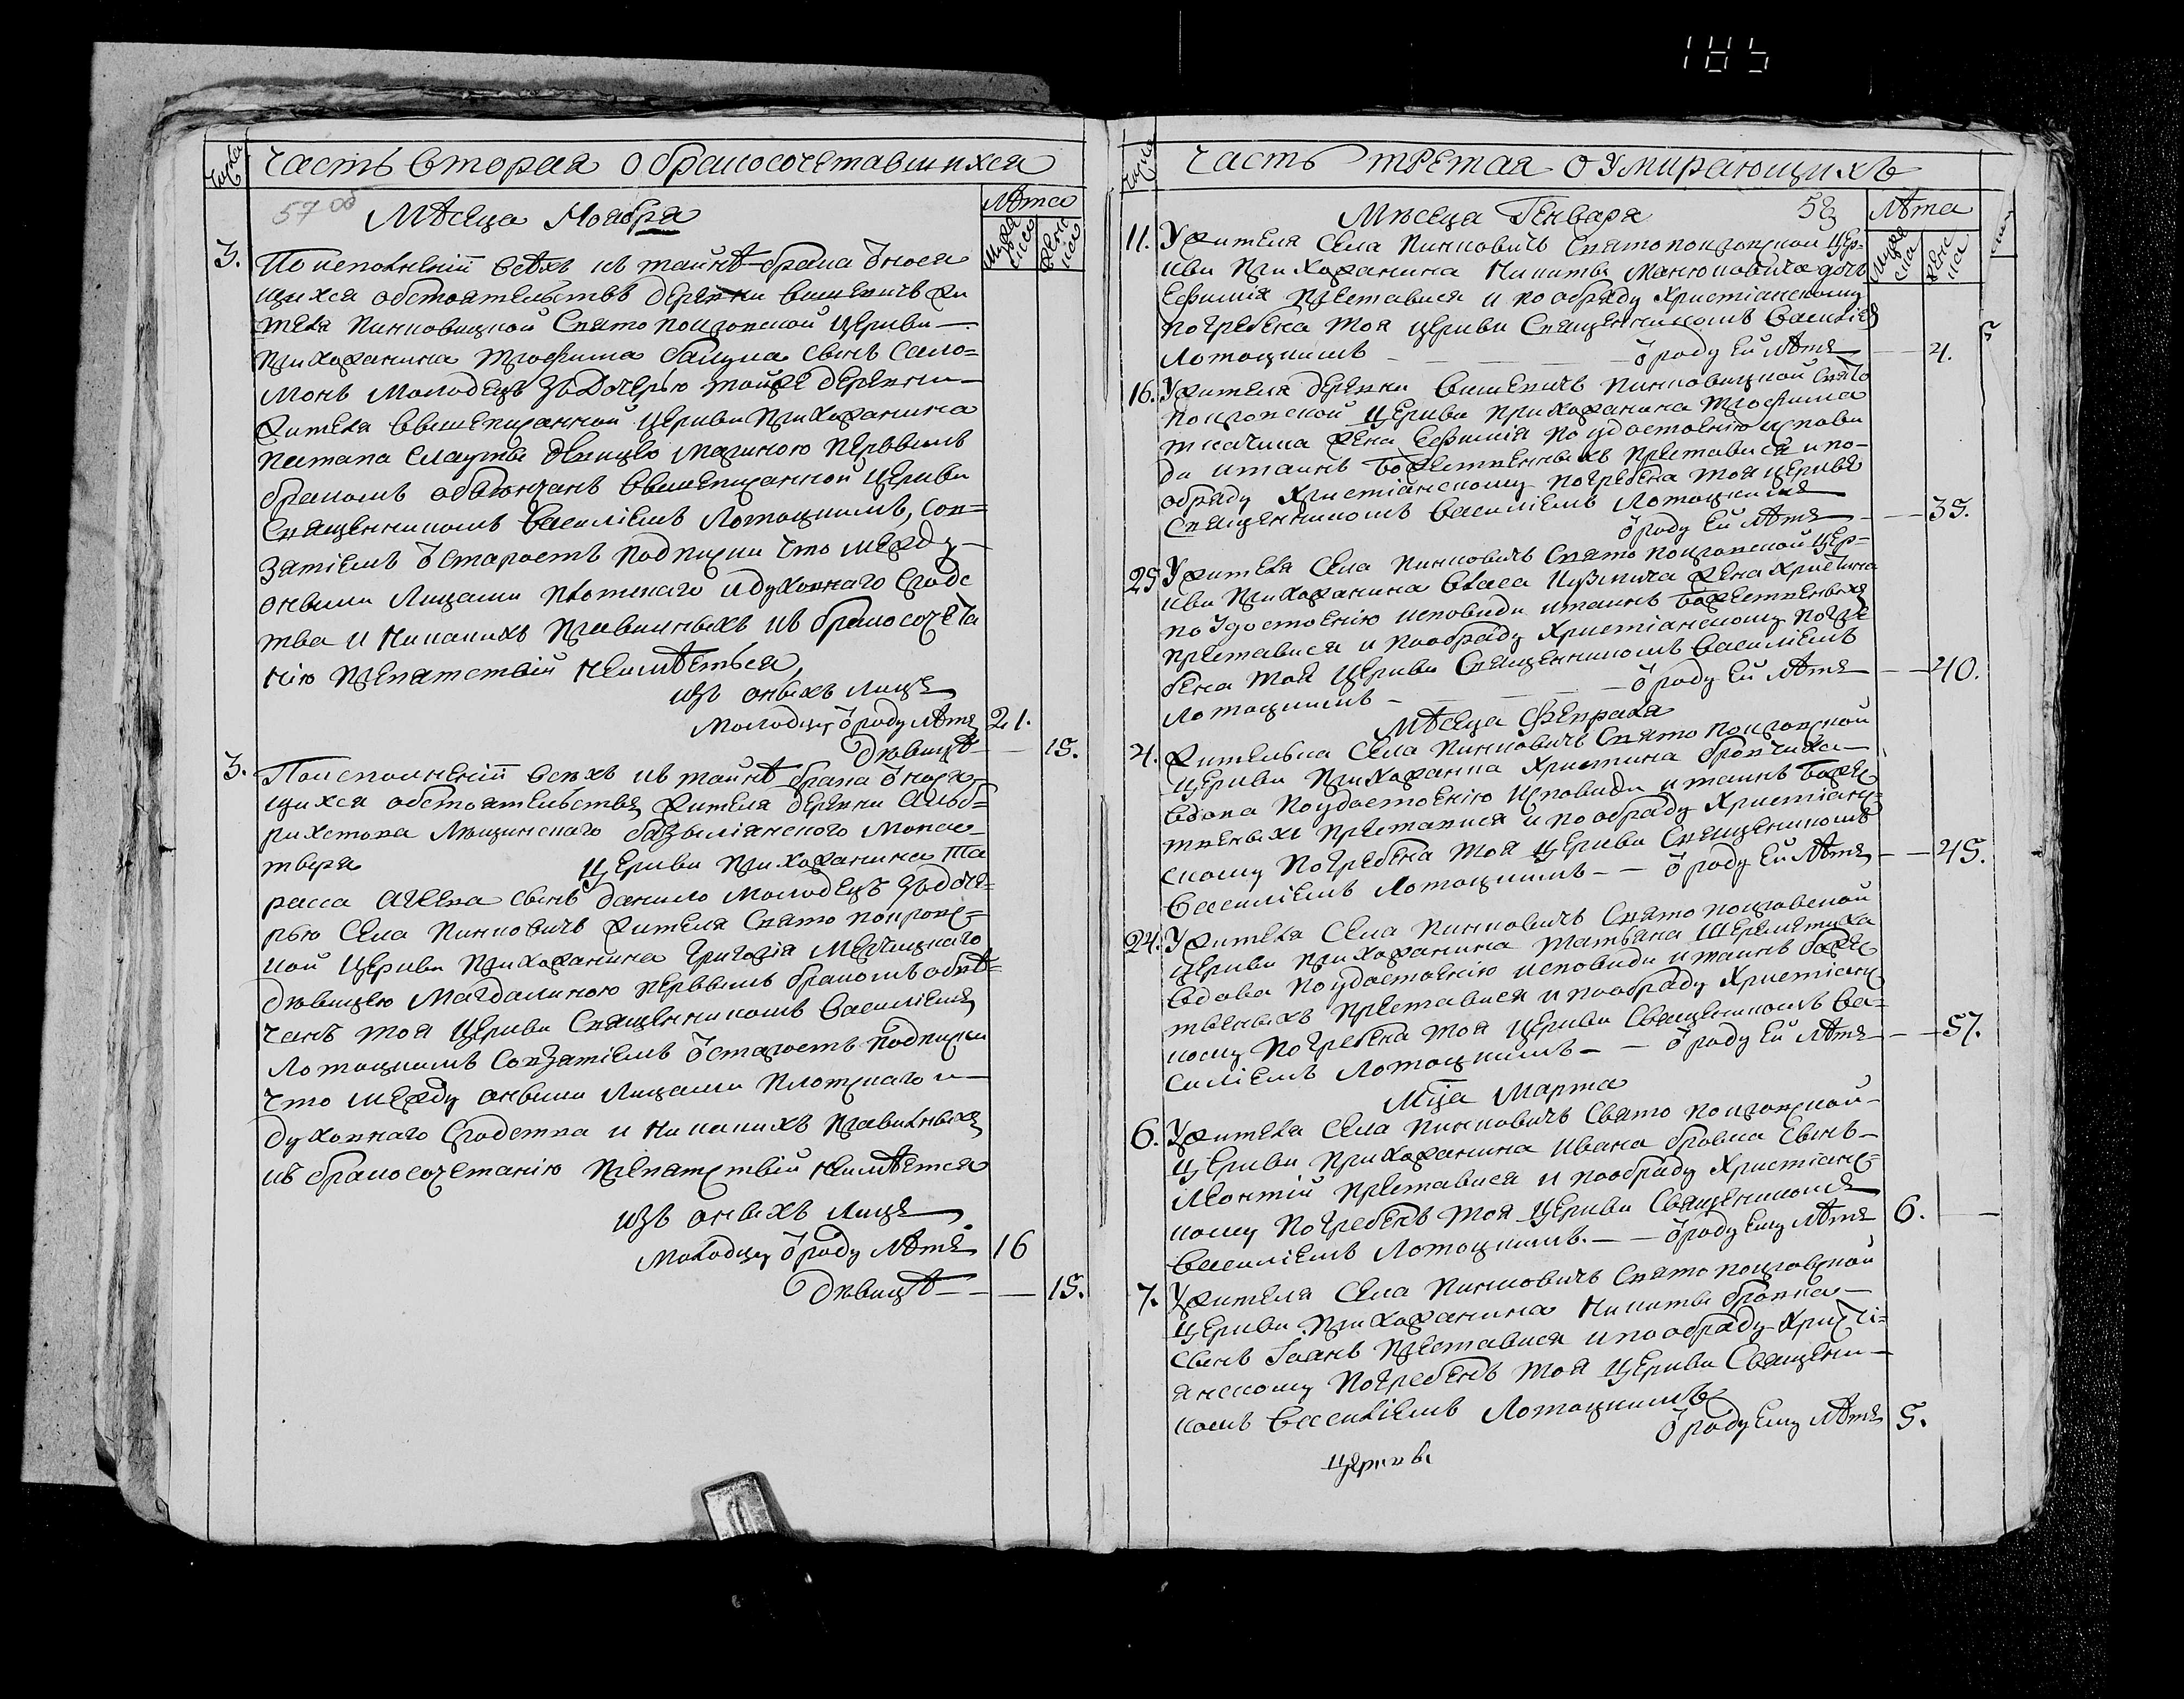 185
Числа
Часть вторая о бракосочетавшихся
57 об
Мѣсеца Ноября
Лѣта
Мужеска
Женска
3.
По исполненіи всѣхъ къ тайнѣ брака относя
щихся обстоятельствъ деревни Вишевичъ жи
теля Пинковицкой Свято покровской церкви
прихожанина Трофима сынъ Само=
монъ молодецъ зъ дочерью тойже деревни
жителя вышеписанной церкви прихожанина
девицею первымъ
бракомъ обвѣнчанъ вышеписанной церкви
Священникомъ Василіемъ Лотоцкимъ, со в=
зятіемъ отстаростъ подписки что между
оными лицами плотскаго и духовнаго сродс
тва и никакихъ правильныхъ къ бракосочета
нію препятствій неимѣеться,
изъ оныхъ лицъ
молодцу отроду лѣтъ 21.
дѣвицѣ — 15.
3.
По исполненіи всѣхъ къ тайнѣ брака относя
щихся обстоятельствъ жителя деревни Альб=
рихтова базыліянского мона
стыря церкви прихожанина Та
расса сынъ Данило молодецъ зъ доче=
рью села Пинковичъ жителя Свято покровс=
кой церкви прихожанина Григорія
дѣвицею Магдалиною первымъ бракомъ обвѣ=
чанъ тоя церкви Священникомъ Василіемъ
Лотоцкимъ совзятіемъ отстаростъ подписки
что между оными лицами плотскаго и
духовнаго сродства и никакихъ правильныхъ
къ бракосочетанію препятствій неимѣется
изъ оныхъ лицъ
молодцу отроду лѣтъ 16
дѣвицѣ — — 15.
Числа
Часть третая о умирающихъ
Мѣсеца Генваря
58
Лѣта
Мужеска
Женска
11. У жителя села Пинковичъ Святопокровской цер=
кви прихожанина Никиты дочь
Ефимія преставися и по обряду христіанскому
погребена тоя церкви Священникомъ Василіемъ
Лотоцкимъ — отроду ей лѣтъ — 4.
16. У жителя деревни Вишевичъ Пинковицкой Свято
покровской церкви прихожанина Трофима
жена Ефимія по удостоенію испове
ди итаинъ божественныхъ преставися и по
обряду христіанскому погребена тоя церкви
Священникомъ Василіемъ Лотоцкимъ
отроду ей лѣтъ — 35.
25 У жителя села Пинковичъ Свято покровской цер=
кви прихожанина Власа жена Христина
по удостоенію исповиди итаинъ божественныхъ
преставися и пообряду христіанскому погре
бена тоя церкви Священникомъ Василіемъ
Лотоцкимъ — отроду ей лѣтъ — 40.
Мѣсеца Февраля
4. Жителька села Пинковичъ Свято покровской
церкви прихожанка Христина
вдова по удостоенію исповиди итаинъ божес
твеныхъ преставися и по обряду христіанс=
кому погребена тоя церкви Священикомъ
Василіемъ Лотоцкимъ — — отроду ей лѣтъ — 45.
24. У жителя села Пинковичъ Свято покровской
церкви прихожанина Татьяна Шереметиха
вдова по удостоенію исповиди итаинъ божес
твеныхъ преставися и пообряду христіанс
кому погребена тоя церкви Священикомъ Ва=
силіемъ Лотоцкимъ — — отроду ей лѣтъ — 57.
Мца Марта
6. У жителя села Пинковичъ Свято покровской
церкви прихожанина Ивана сынъ
Леонтій преставися и пообряду христіанс=
кому погребенъ тоя церкви Священикомъ
Василіемъ Лотоцкимъ. — — отроду ему лѣтъ 6. —
7. У жителя села Пинковичъ Свято покровской
церкви прихожанина Никиты
сынъ Іоанъ преставися и по обряду христі=
янскому погребенъ тоя церкви Священи
комъ Василіемъ Лотоцкимъ
отроду ему лѣтъ 5.
церкви